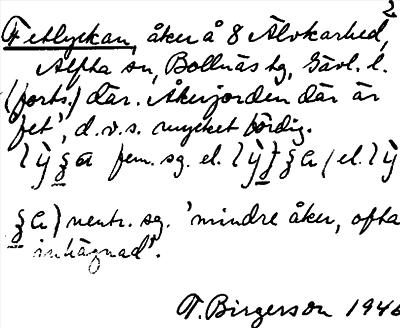 2
Fetlyckan, åker å 8 Älvkarhed,
Alfta sn, Bollnäs tg, Gävl. l.
(forts.) där. Åkerjorden där är
fet', d.v.s. mycket bördig.
fem. sg. el. (el.
neutr. sg. 'mindre åker, ofta
inhägnad'.
T. Birgerson 1946